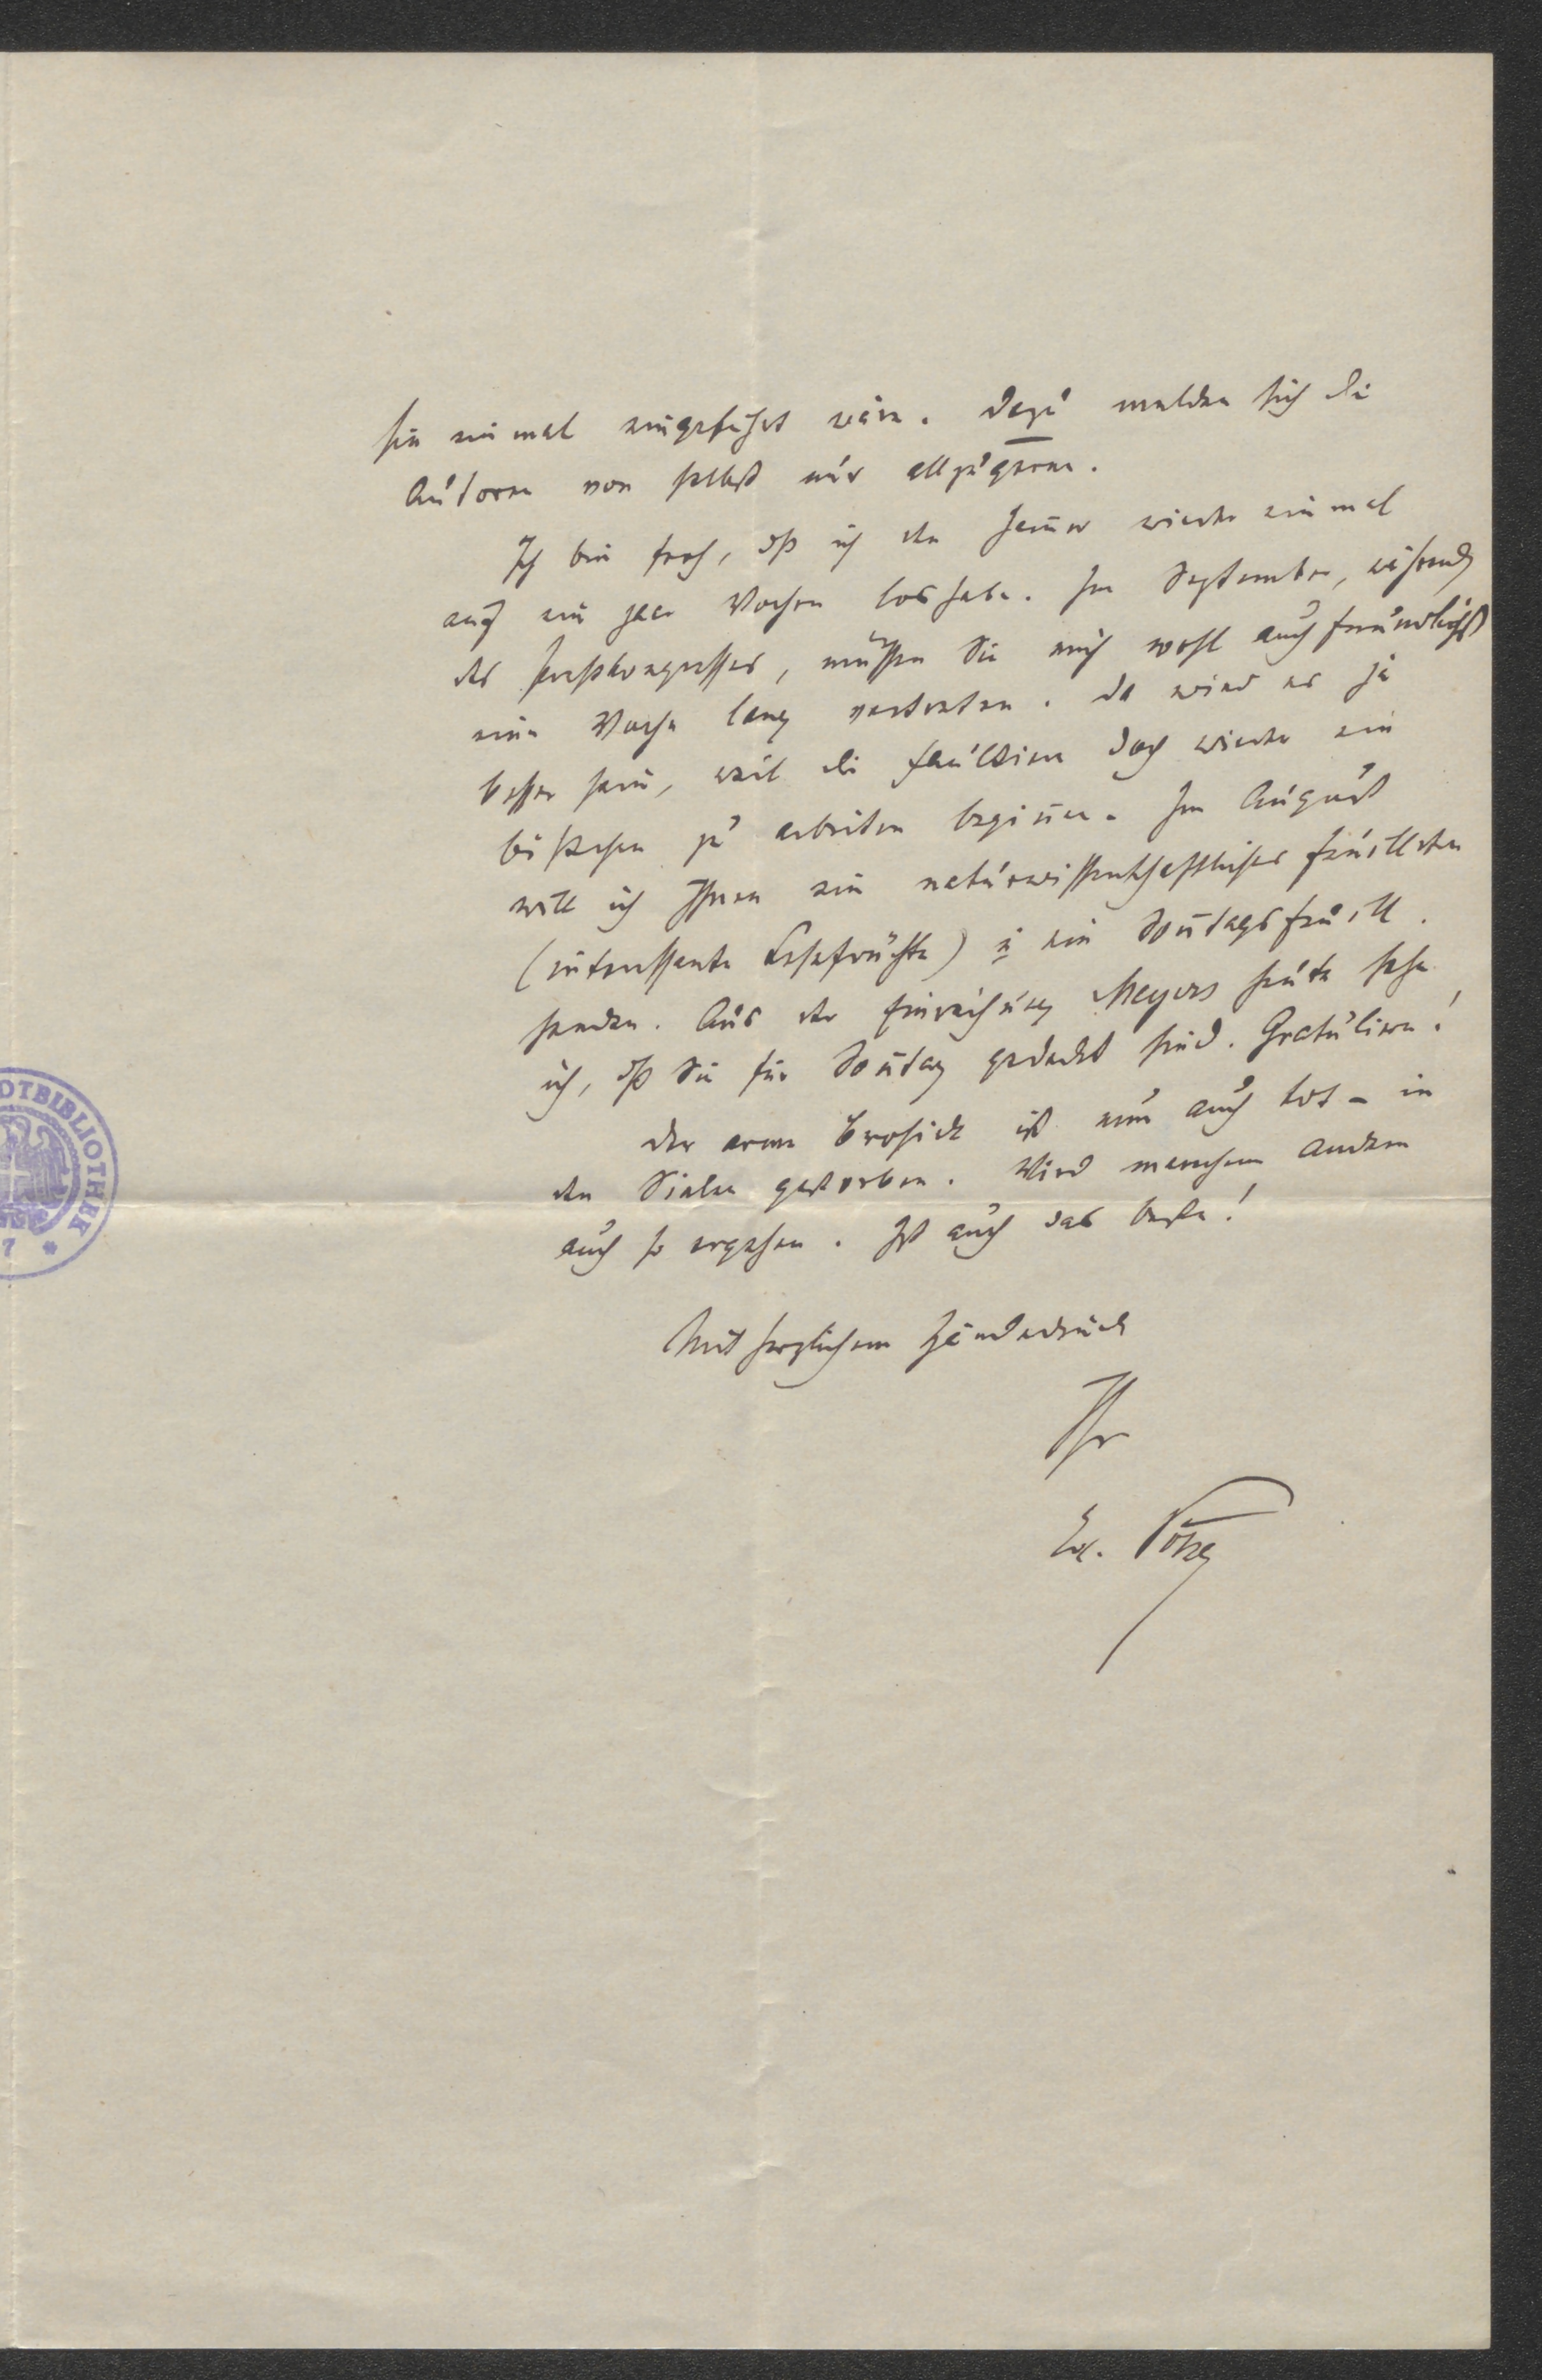 sie einmal eingeführt wäre. Dazu melden sich die
Autoren von selbst nur allzugerne.
Ich bin froh, dß ich den Jammer wieder einmal
auf ein paar Wochen los habe. Im September, während
des Presskongresses, müssen Sie mich wohl auch freundlichst
eine Woche lang vertreten. Da wird es ja
besser sein, weil die Faultiere doch wieder ein
bißchen zu arbeiten beginnen. Im August
will ich Ihnen ein naturwissenschaftliches Feuilleton
(interessante Lesefrüchte) u ein Sonntagsfeuill.
senden. Aus der Einreichung Meyers heute sehe
ich, dß Sie für Sonntag gedeckt sind. Gratuliere!
Der arme Groshick ist nun auch tot – in
den Sielen gestorben. Wird manchem andern
auch so ergehen. Ist auch das beste!
Mit herzlichem Händedruck
Ihr
Ed. Pötzl
DTBIBLIOTHEK
7 *